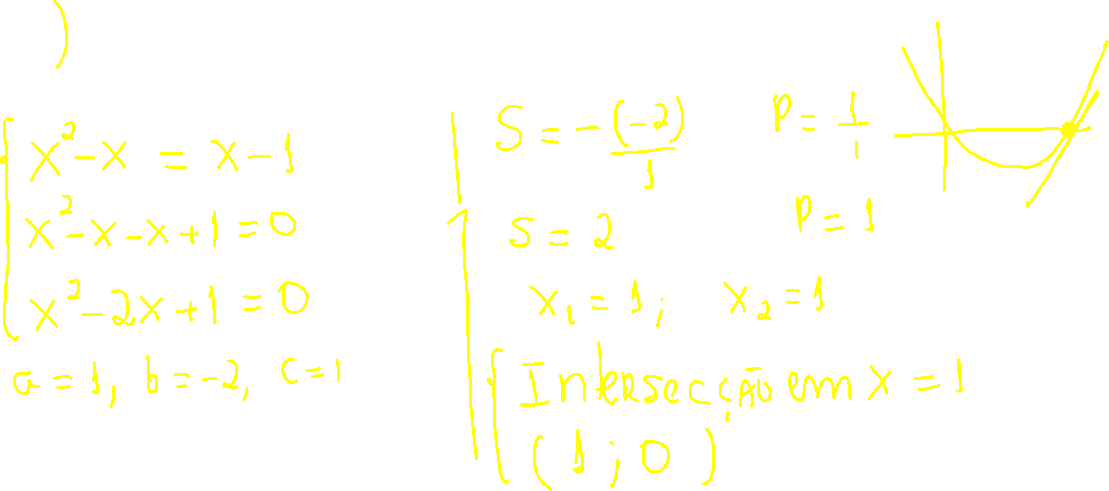 )
x²-x = x-1
x²-x-x+1=0
x²-2x+1=0
a=1, b=-2, c=1
S=-(-2)/1 P=1/1
S=2 P=1
x₁=1; x₂=1
Intersecção em x=1
(1;0)